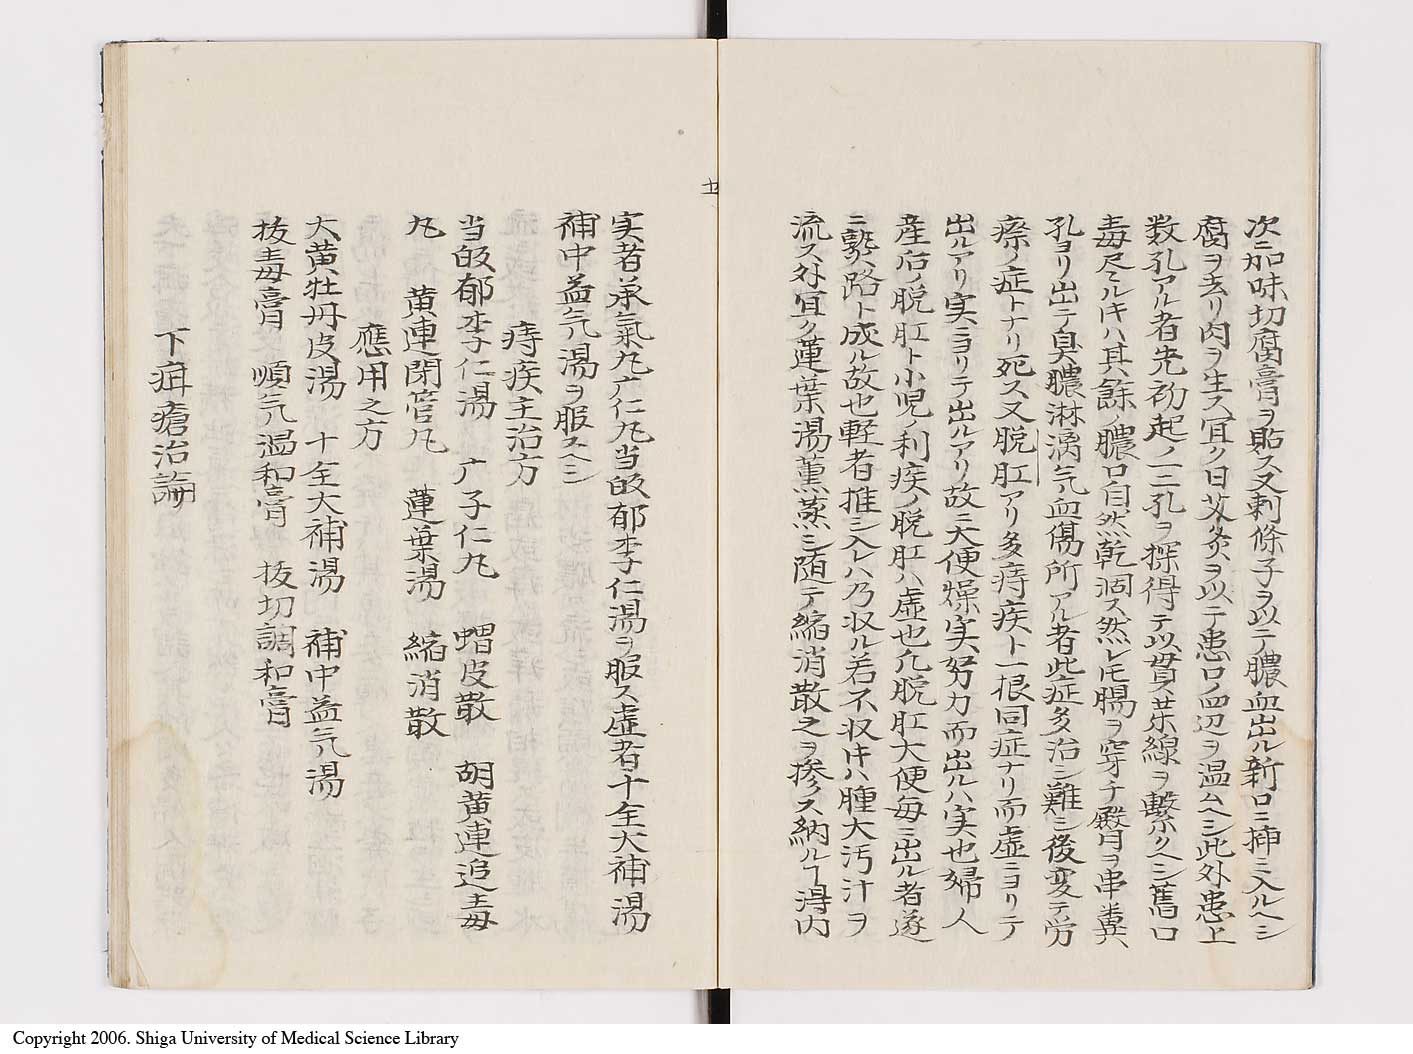 次ニ加味切腐膏ヲ貼ス又剌條子ヲ以テ膿血出ル新口ニ挿ミ入ルヘシ
腐ヲ去リ肉ヲ生ス宜ク日艾灸ヲ以テ患口ノ四辺ヲ温ムヘシ此外患上
数孔アル者先初起ノ一二孔ヲ探得テ以貫ス線ヲ繫クヘシ舊口
毒尽ミルキハ其餘ノ膿口自然乾涸ス然レ𪜈腸ヲ穿チ臀肉ヲ串糞
孔ヨリ出テ臭膿淋漓气血傷所アル者此症多治シ難シ後変テ労
瘵ノ症トナリ死ス又脱肛アリ多痔疾ト一根同症ナリ而虚ニヨリテ
出ルアリ実ミヨリテ出ルアリ故ニ大便燥実努力而出ルハ実也婦人
産后ノ脱肛ト小児ノ利疾ノ脱肛ハ虚也凢脱肛大便每ミ出ル者遂
ニ熟路ト成ル故也軽者推シ入レハ乃収ル若不収𪜈ハ腫大汚汁ヲ
流ス外宜ク蓮葉湯薫蒸シ随テ縮消散之ヲ掺ス納ルヿ得内
実者承氣丸广仁丸当皈郁李仁湯ヲ服ス虚者十全大補湯
補中益气湯ヲ服スヘシ
痔疾主治方
当皈郁李仁湯 广子仁丸 蝟皮散 胡黄連追毒
丸 黄連閉管丸 蓮葉湯 縮消散
應用之方
大黄牡丹皮湯 十全大補湯 補中益气湯
拔毒膏 順气温和膏 拔切調和膏
下疳瘡治論
Copyright 2006. Shiga University of Medical Science Library